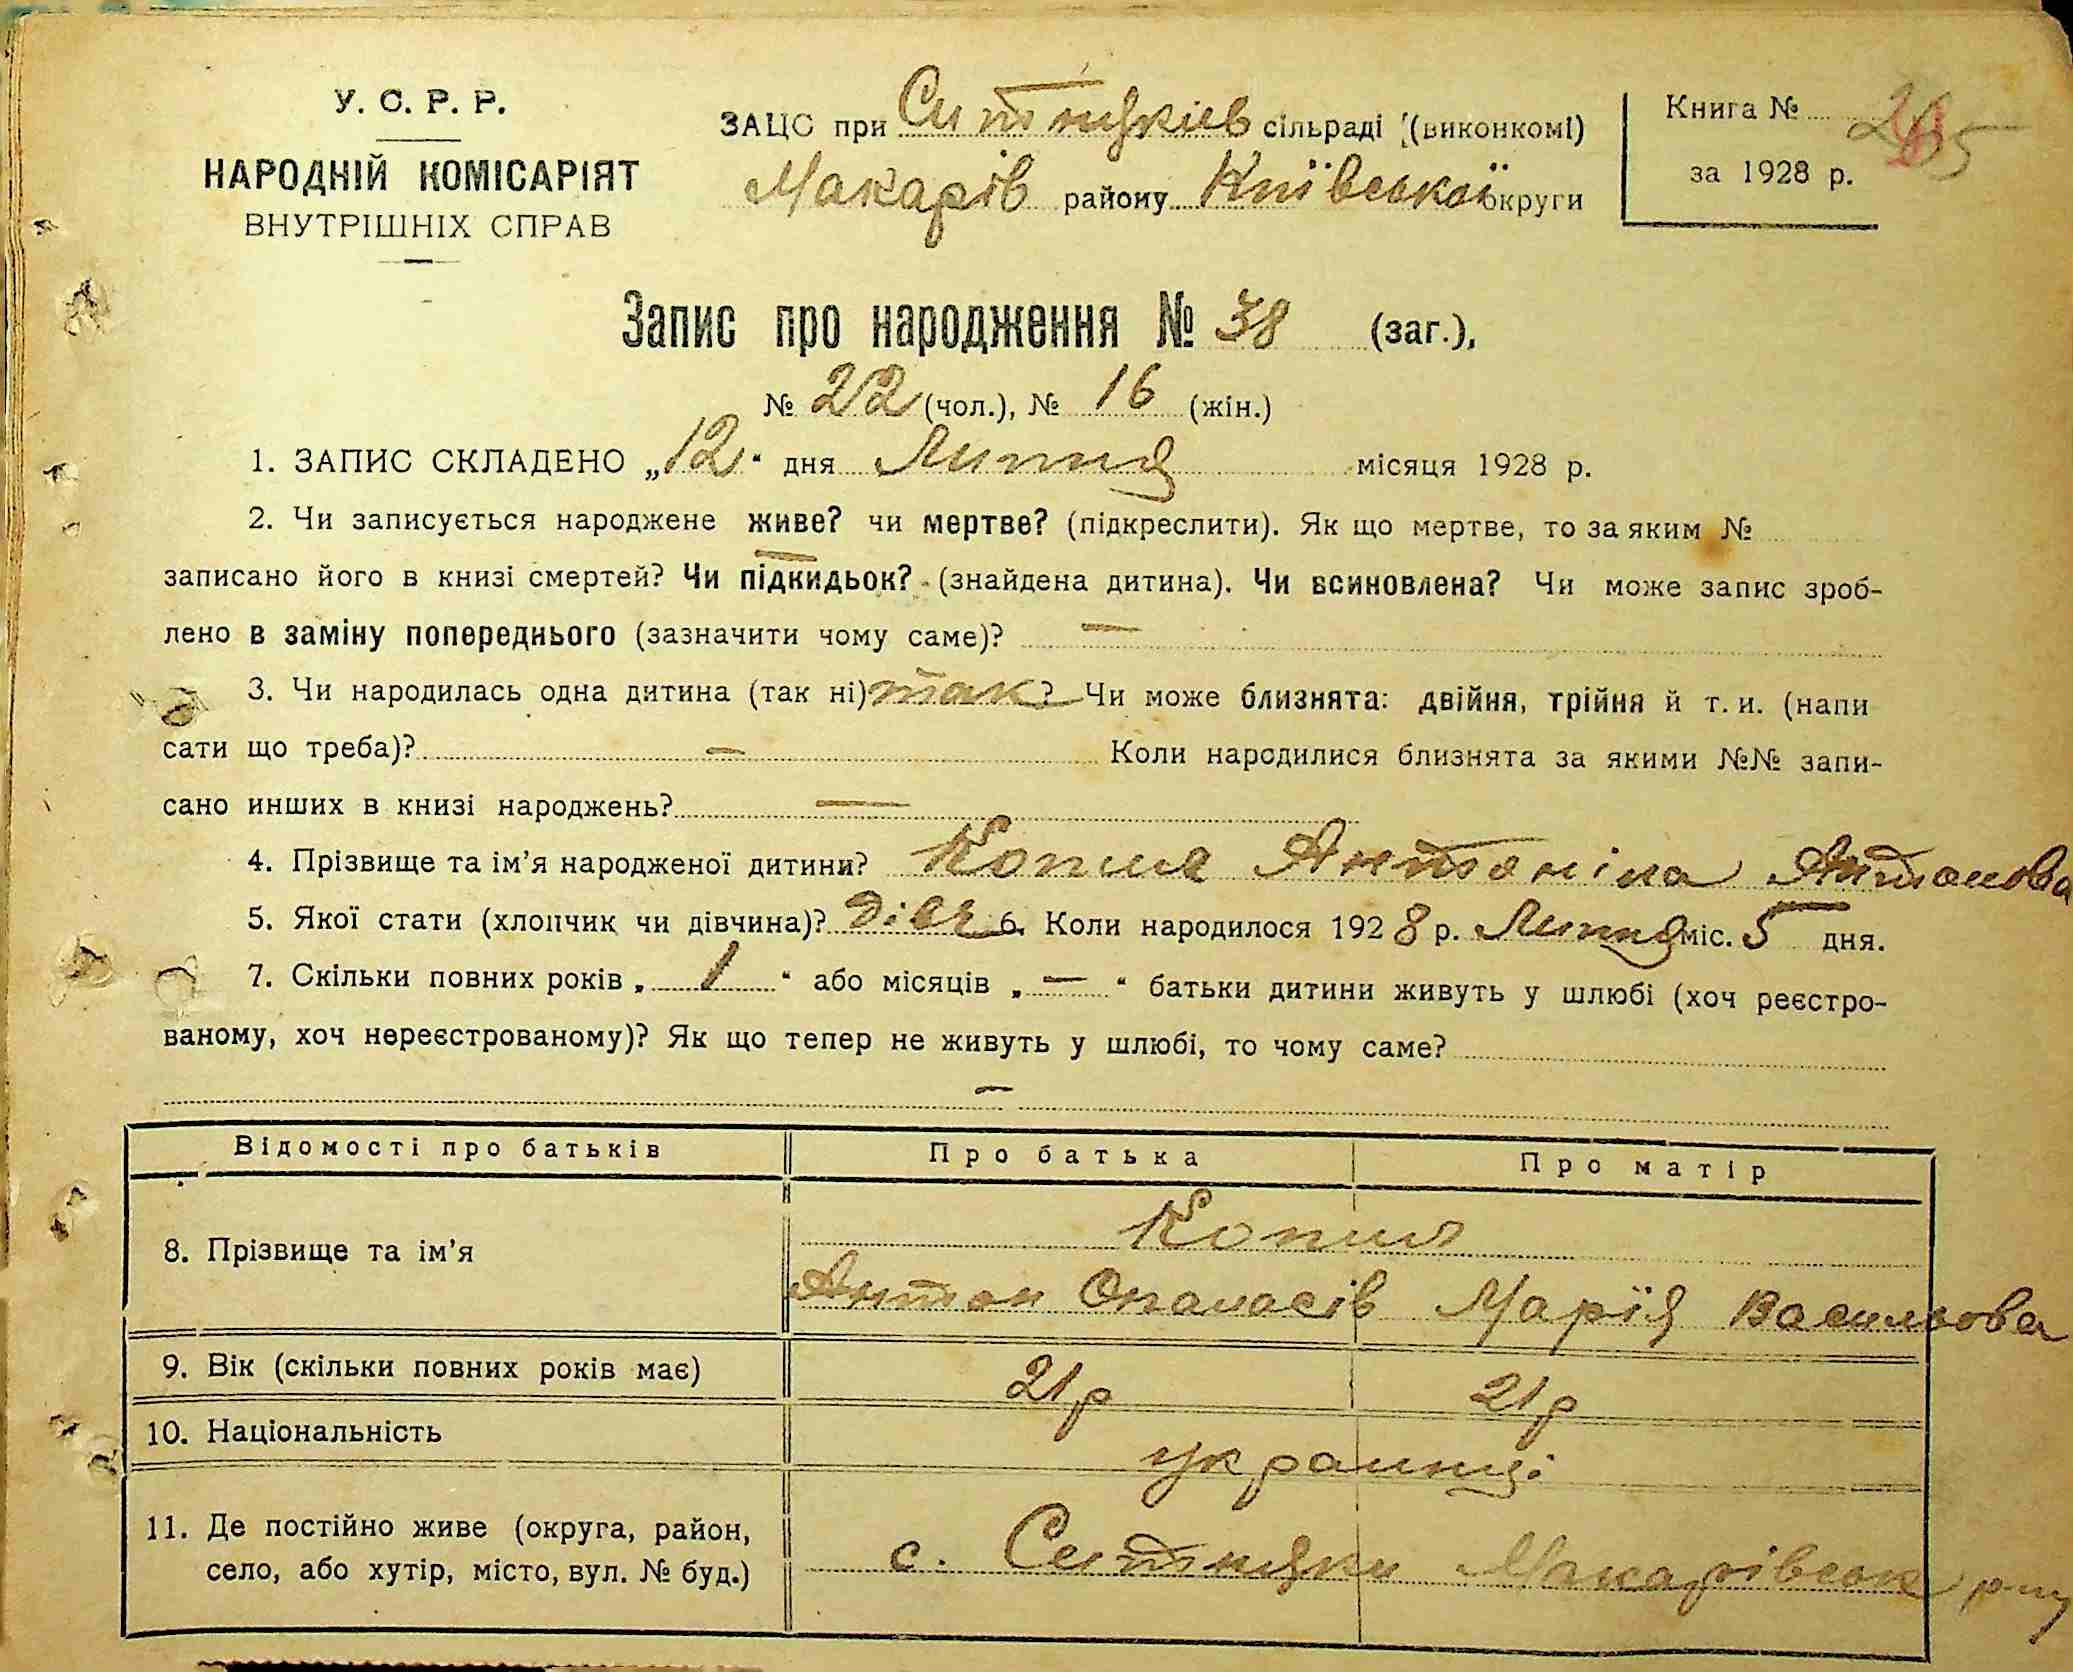 У. С. Р. Р.
НАРОДНІЙ КОМІСАРІЯТ
ВНУТРІШНІХ СПРАВ
ЗАЦС при Ситняків сільраді (виконкомі)
Макарів району Київської округи
Книга №
за 1928 р.
Запис про народження № 38 (заг.),
№ 22 (чол.), № 16 (жін.)
1. ЗАПИС СКЛАДЕНО „12“ дня Липня місяця 1928 р.
2. Чи записується народжене живе? чи мертве? (підкреслити). Як що мертве, то за яким №
записано його в книзі смертей? Чи підкидьок? - (знайдена дитина). Чи всиновлена? Чи може запис зроб-
лено в заміну попереднього (зазначити чому саме)? —
3. Чи народилась одна дитина (так ні) так? Чи може близнята: двійня, трійня й т. и. (напи
сати що треба)? — Коли народилися близнята за якими №№ запи-
сано инших в книзі народжень? —
4. Прізвище та ім’я народженої дитини? Копил Антоніна Антонова
5. Якої стати (хлопчик чи дівчина)? Дівч 6. Коли народилося 1928 р. Липня міс. 5 дня.
7. Скільки повних років „ 1 “ або місяців „ — “ батьки дитини живуть у шлюбі (хоч реєстро-
ваному, хоч нереєстрованому)? Як що тепер не живуть у шлюбі, то чому саме?
—
Відомості про батьків Про батька Про матір
8. Прізвище та ім’я Копил
Антон Опанасів Марія Васильова
9. Вік (скільки повних років має) 21 р 21 р
10. Національність українці
11. Де постійно живе (округа, район,
село, або хутір, місто, вул. № буд.) с. Ситняки Макарівськ р-ну